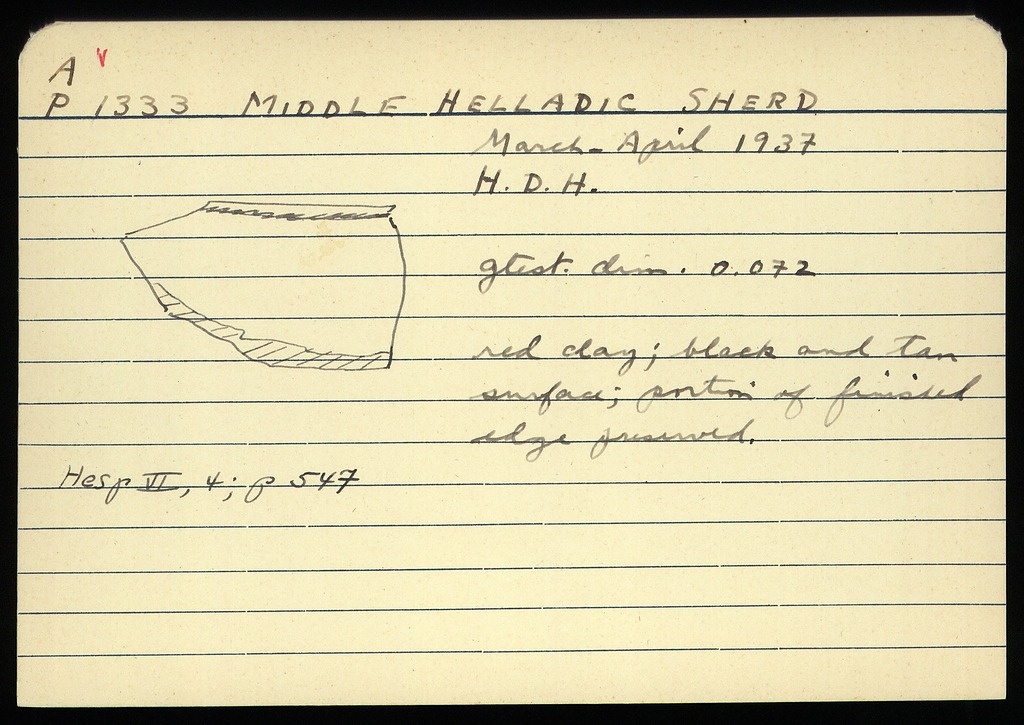 A v
P 1333 MIDDLE HELLADIC SHERD
March - April 1937
H. D. H.
gtest. dim. 0.072
red clay; black and tan
surface; portion of finished
edge preserved.
Hesp VI, 4; p 547